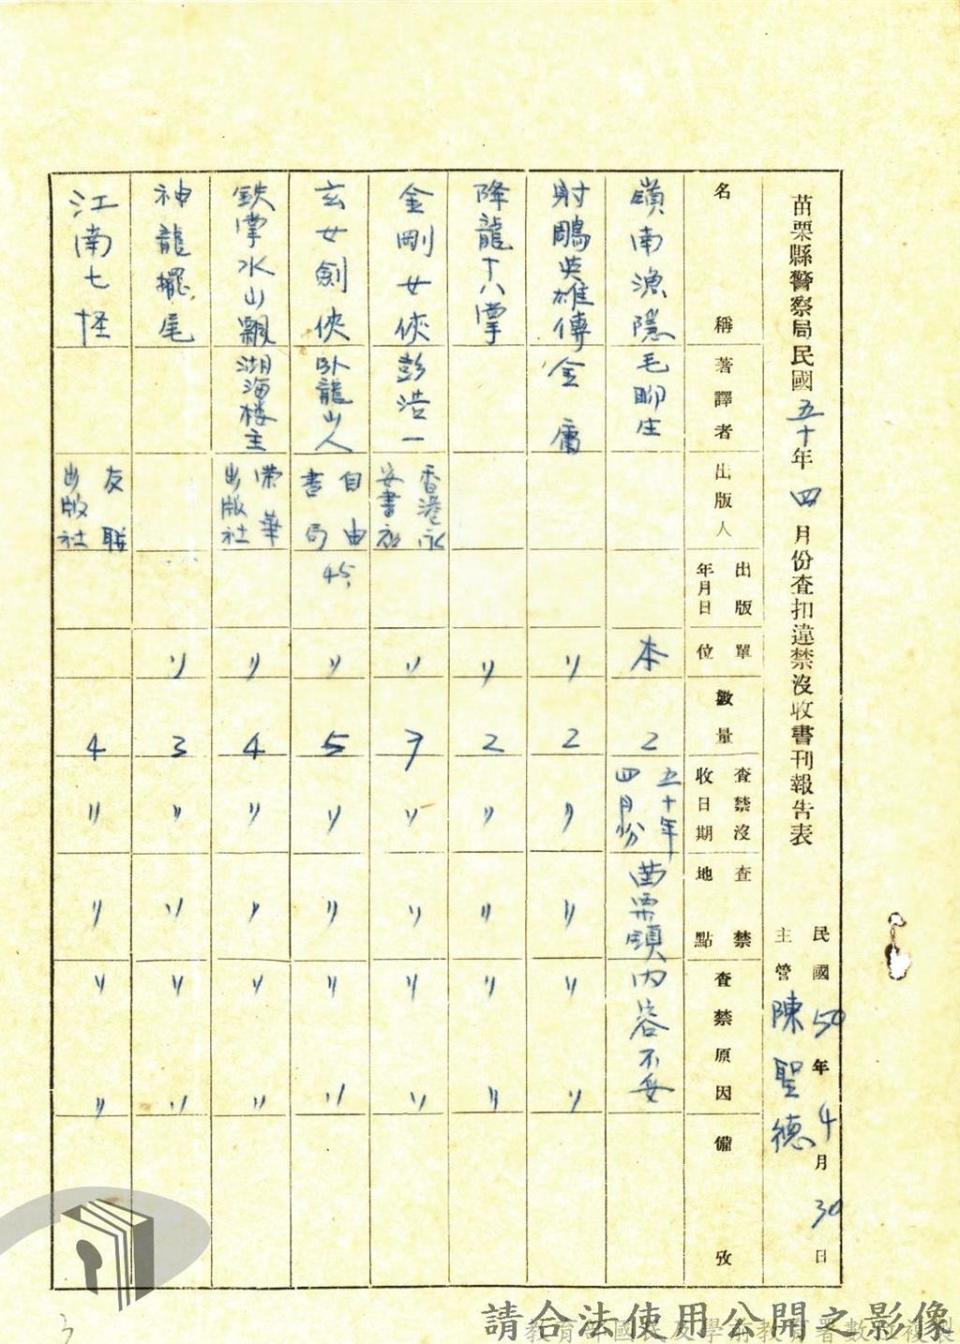 苗栗縣警察局民國五十年四月份查扣違禁沒收書刊報告表
民國50年4月30日
主管 陳聖德
名稱 著譯者 出版人 出版年月日 單位 數量 查禁沒收日期 查禁地點 查禁原因 備攷
嶺南漁隱 毛聊生 本 2 五十年四月份 苗栗鎮 內容不妥
射鵰英雄傳 金庸 〃 2 〃 〃 〃 〃
降龍十八掌 〃 2 〃 〃 〃 〃
金剛女俠 彭浩一 香港永安書局 〃 7 〃 〃 〃 〃
玄女劍俠 臥龍山人 自由書局 45. 〃 5 〃 〃 〃 〃
鉄掌水山飄 湖海楼主 荣華出版社 〃 4 〃 〃 〃 〃
神龍擺尾 〃 3 〃 〃 〃 〃
江南七怪 友联出版社 4 〃 〃 〃 〃
請合法使用公開之影像